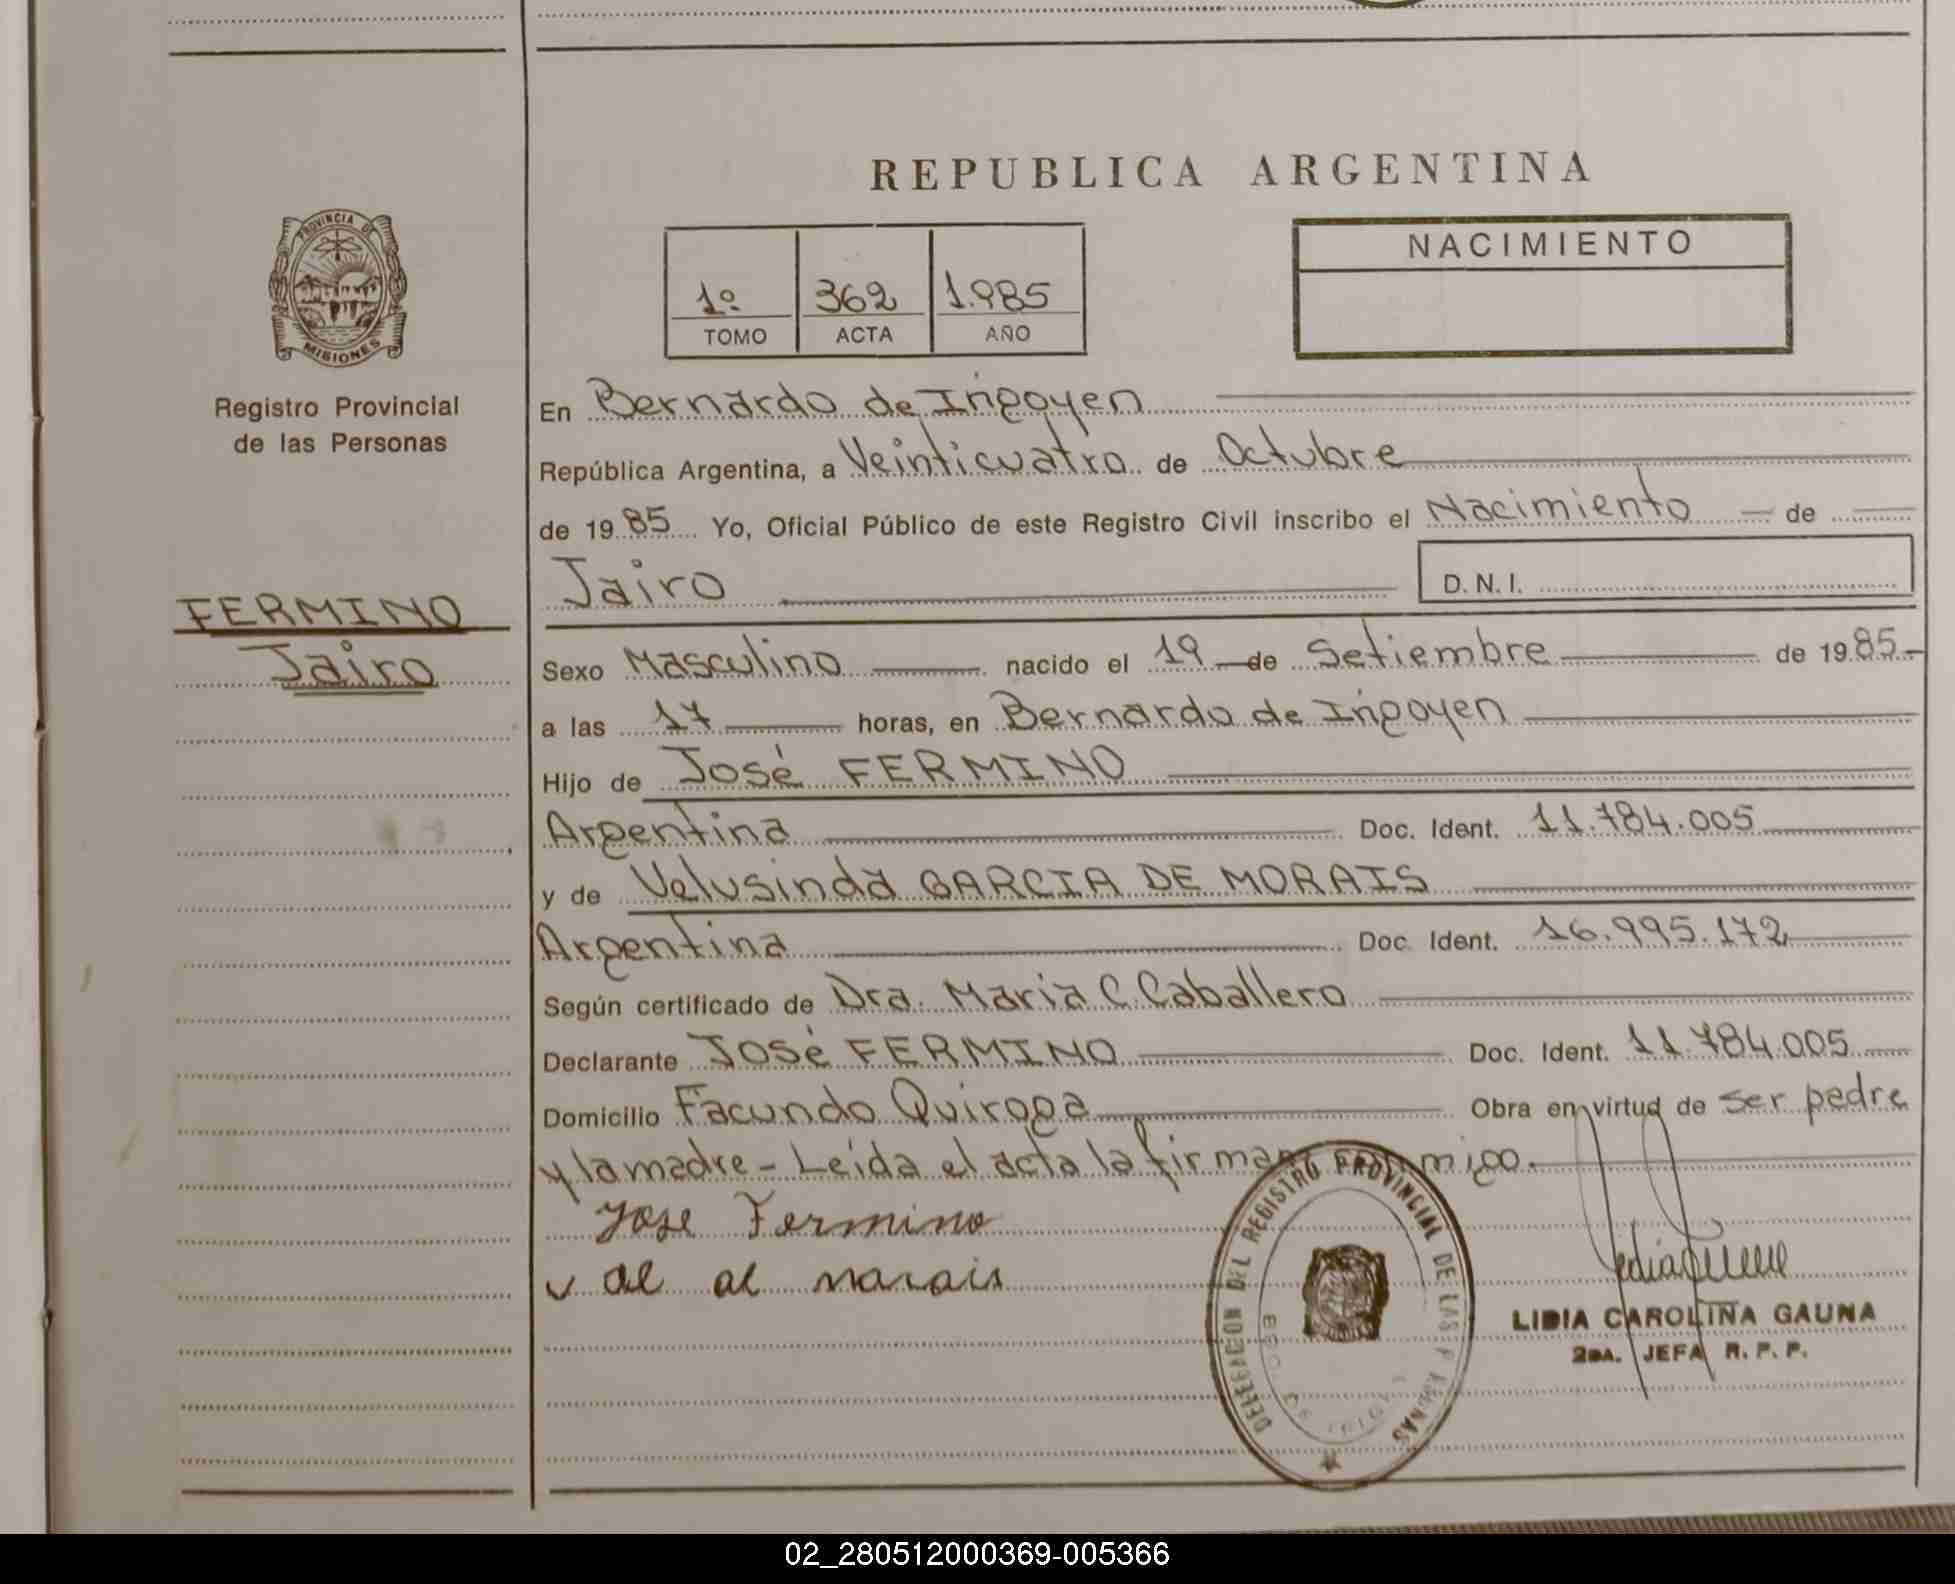 REPUBLICA ARGENTINA
PROVINCIA DE
MISIONES
Registro Provincial
de las Personas
1º 362 1.985
TOMO ACTA AÑO
NACIMIENTO
En Bernardo de Irigoyen
República Argentina, a Veinticuatro de Octubre
de 1985 Yo, Oficial Público de este Registro Civil inscribo el Nacimiento — de
Jairo D.N.I.
FERMINO
Jairo
Sexo Masculino nacido el 19 de Setiembre de 1985
a las 17 horas, en Bernardo de Irigoyen
Hijo de José FERMINO
Argentina Doc. Ident. 11.784.005
y de Velusinda GARCIA DE MORAIS
Argentina Doc. Ident. 16.995.172
Según certificado de Dra. Maria C. Caballero
Declarante José FERMINO Doc. Ident. 11.784.005
Domicilio Facundo Quiroga Obra en virtud de ser padre
y la madre - Leída el acta la firman conmigo.
Jose Fermino
morais
DELEGACION DEL REGISTRO PROVINCIAL DE LAS PERSONAS
BDO. DE IRIGOYEN
LIDIA CAROLINA GAUNA
2DA. JEFA R. P. P.
02_280512000369-005366